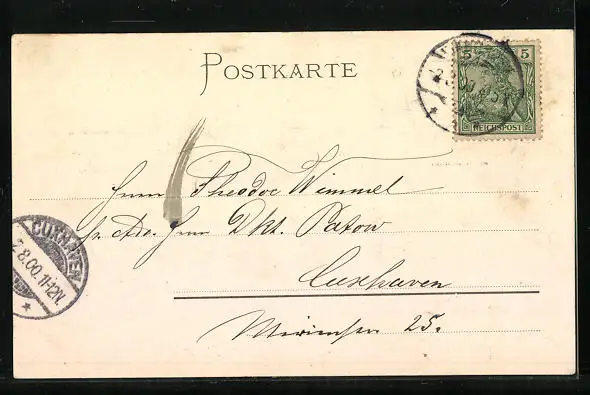 POSTKARTE
5 5
REICHSPOST
Herrn Theodor Wimmel
pr. Adr. Herrn Dkt. Patow
Cuxhaven
25.
CUXHAVEN
8.00.11-12N.